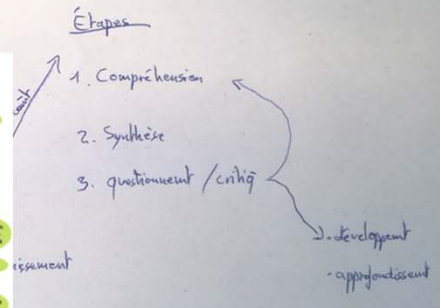 Étapes
1. Compréhension
2. Synthèse
3. questionnemt / critiq
- développemt
- approfondissemt
issement